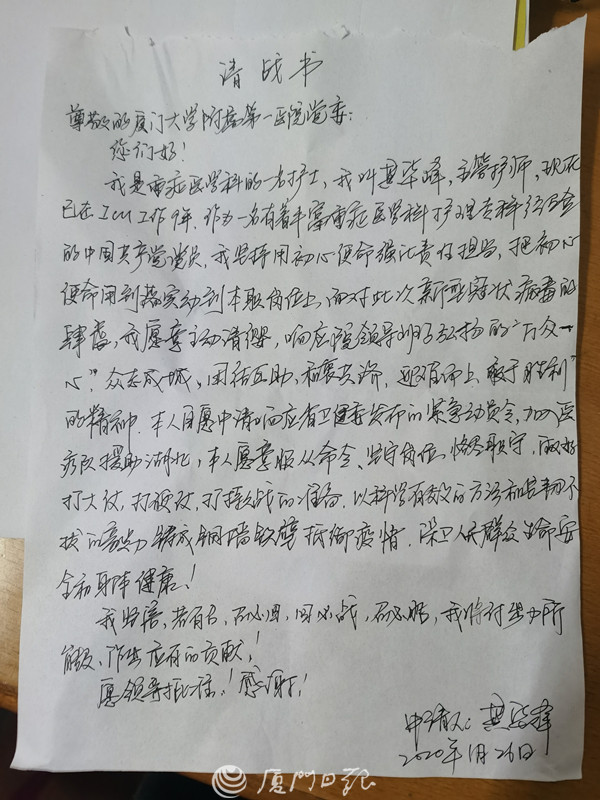 请战书
尊敬的厦门大学附属第一医院党委:
您们好!
我是重症医学科的一名护士,我叫峰,主管护师,现在
已在ICU工作9年.作为一名有着丰富重症医学科护理专科经验
的中国共产党党员,我坚持用初心使命强化责任担当,把初心
使命用到落实动到本职岗位上,面对此次新型冠状病毒的
肆虐,我愿意主动请缨,响应院领导弘扬的“万众一
心”众志成城、团结互助、和衷共济、迎难而上、敢于胜利”
的精神.本人自愿申请响应省卫健委发布的紧急动员令,加入医
疗队援助湖北,本人愿意服从命令、坚守岗位、恪尽职守,做好
打大仗,打硬仗,打持久战的准备.以科学有效的方法和坚韧不
拔的毅力铸成铜墙铁壁抵御疫情.保卫人民群众生命安
全和身体健康!
我坚信,若有召,召必回,回必战,召必胜,我将付出力所
能及、作出应有的贡献!
愿领导批准!感谢!
申请人:峰
2020年1月26日
厦门日报